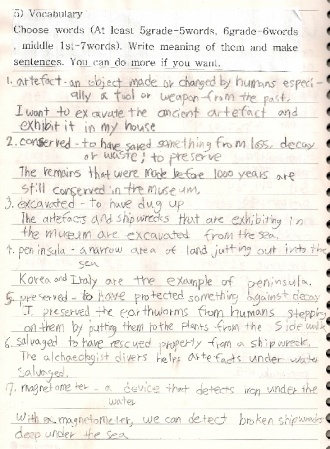 5) Vocabulary
Choose words (At least 5grade-5words, 6grade-6words
, middle 1st-7words). Write meaning of them and make
sentences. You can do more if you want.
1. artefact - an object made or changed by humans especi-
ally a tool or weapon from the past.
I want to excavate the ancient artefact and
exhibit it in my house
2. conserved - to have saved something from loss, decay
or waste; to preserve
The remains that were made before 1000 years are
still conserved in the museum.
3. excavated - to have dug up
The artefacts and shipwrecks that are exhibiting in
the museum are excavated from the sea.
4. peninsula - a narrow area of land jutting out into the
sea
Korea and Italy are the example of peninsula.
5. preserved - to have protected something against decay
I preserved the earthworms from humans stepping
on them by putting them to the plants from the side walk
6. salvaged to have rescued property from a shipwreck.
The alchaeologist divers helps artefacts under water
salvaged.
7. magnetometer - a device that detects iron under the
water
With a magnetometer, we can detect broken shipwrecks
deep under the sea